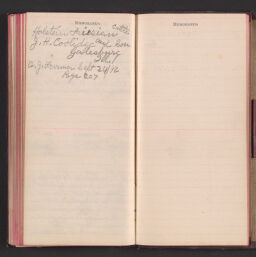 MEMORANDA
Holstein Friesian Cattle
J. H. Coolidge and Son
Galesburg
Ill.
Farmer Sept 24/12
Page 207
MEMORANDA